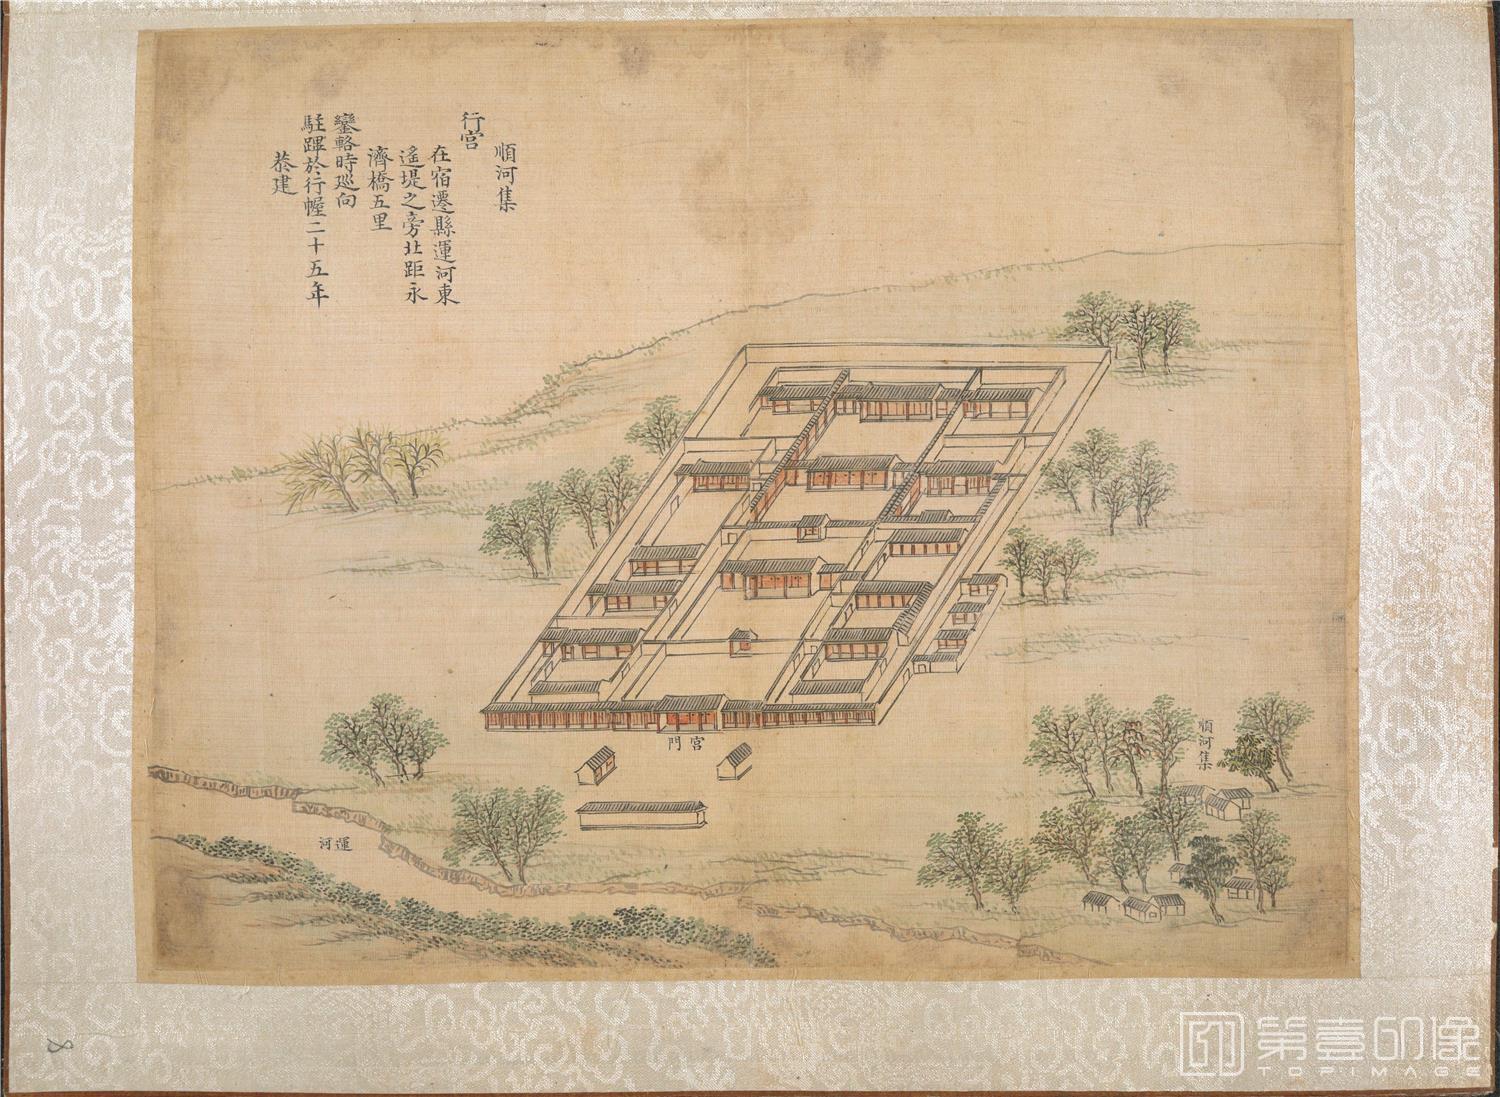 順河集
行宮
在宿遷縣運河東
遙堤之旁北距永
濟橋五里
鑾輅時巡向
駐蹕於行幄二十五年
恭建
宮門
運河
順河集
8
第壹印像
TOPIMAGE